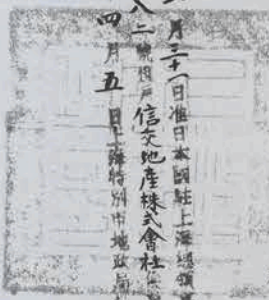 月三十一日准日本國駐上海總領
八二號租戶信交地産株式會社
四月五日上海特別市地政局